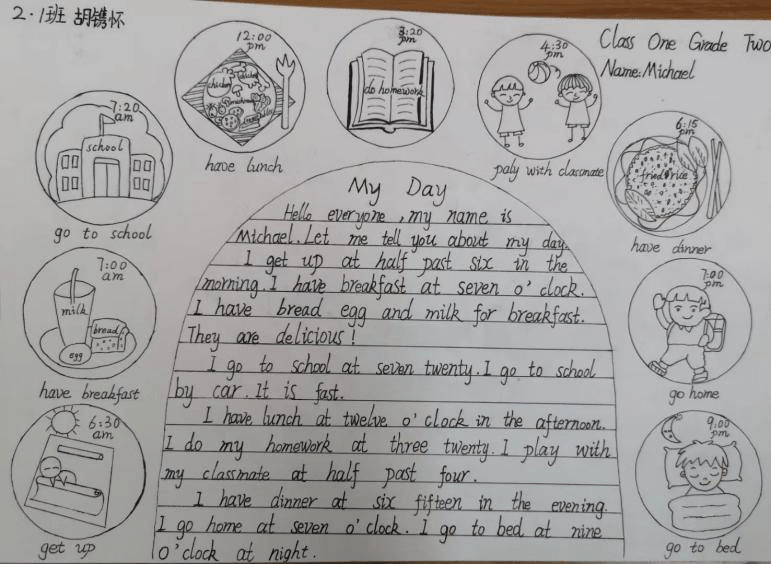 2·1班 胡镌怀
Class One Grade Two
Name:Michael
6:30
am
get up
7:00
am
milk
bread
egg
have breakfast
7:20
am
school
go to school
12:00
pm
chicken
have lunch
3:20
pm
do homework
4:30
pm
paly with classmate
6:15
pm
fried rice
have dinner
7:00
pm
go home
9:00
pm
go to bed
My Day
Hello everyone, my name is
Michael. Let me tell you about my day.
I get up at half past six in the
morning. I have breakfast at seven o'clock.
I have bread egg and milk for breakfast.
They are delicious!
I go to school at seven twenty. I go to school
by car. It is fast.
I have lunch at twelve o'clock in the afternoon.
I do my homework at three twenty. I play with
my classmate at half past four.
I have dinner at six fifteen in the evening.
I go home at seven o'clock. I go to bed at nine
o'clock at night.